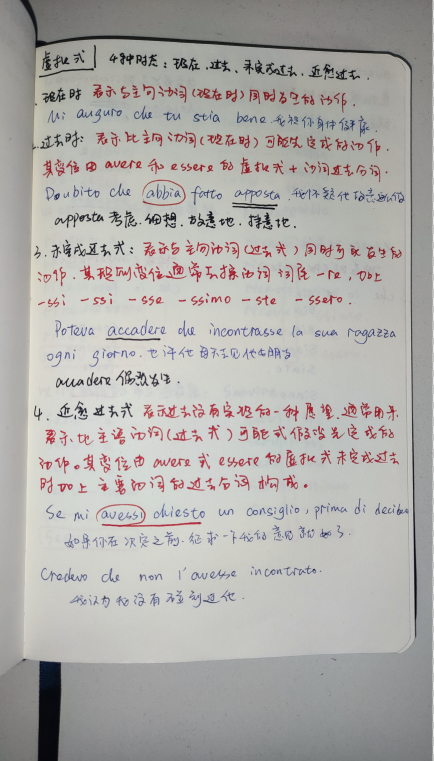 虚拟式 4种时态：现在、过去、未完成过去、近愈过去.
1. 现在时 表示与主句动词(现在时)同时发生的动作.
Mi auguro che tu stia bene 我祝你身体健康.
2. 过去时: 表示比主句动词(现在时)可能先完成的动作.
其变位由 avere 和 essere 的 虚拟式 + 动词过去分词.
Doubito che abbia fatto apposta.
apposta 考虑. 细想. 故意地. 特意地.
3. 未完成过去式: 表示与主句动词(过去式)同时可能发生的
动作. 其规则变位通常去掉动词词尾 -re, 加上
-ssi -ssi -sse -ssimo -ste -ssero.
Poteva accadere che incontrasse la sua ragazza
ogni giorno. 也许他每天去见他女朋友
accadere 偶然发生.
4. 近愈过去式 表示过去没有实现的一种愿望. 通常用来
表示比主语动词(过去式)可能或假设先完成的
动作。其变位由 avere 或 essere 的虚拟式未完成过去
时加上主要动词的过去分词构成。
Se mi avessi chiesto un consiglio, prima di decidere
如果你在决定之前. 征求一下我的意见就好了.
Credevo che non l'avesse incontrato.
我认为我没有碰到过他.